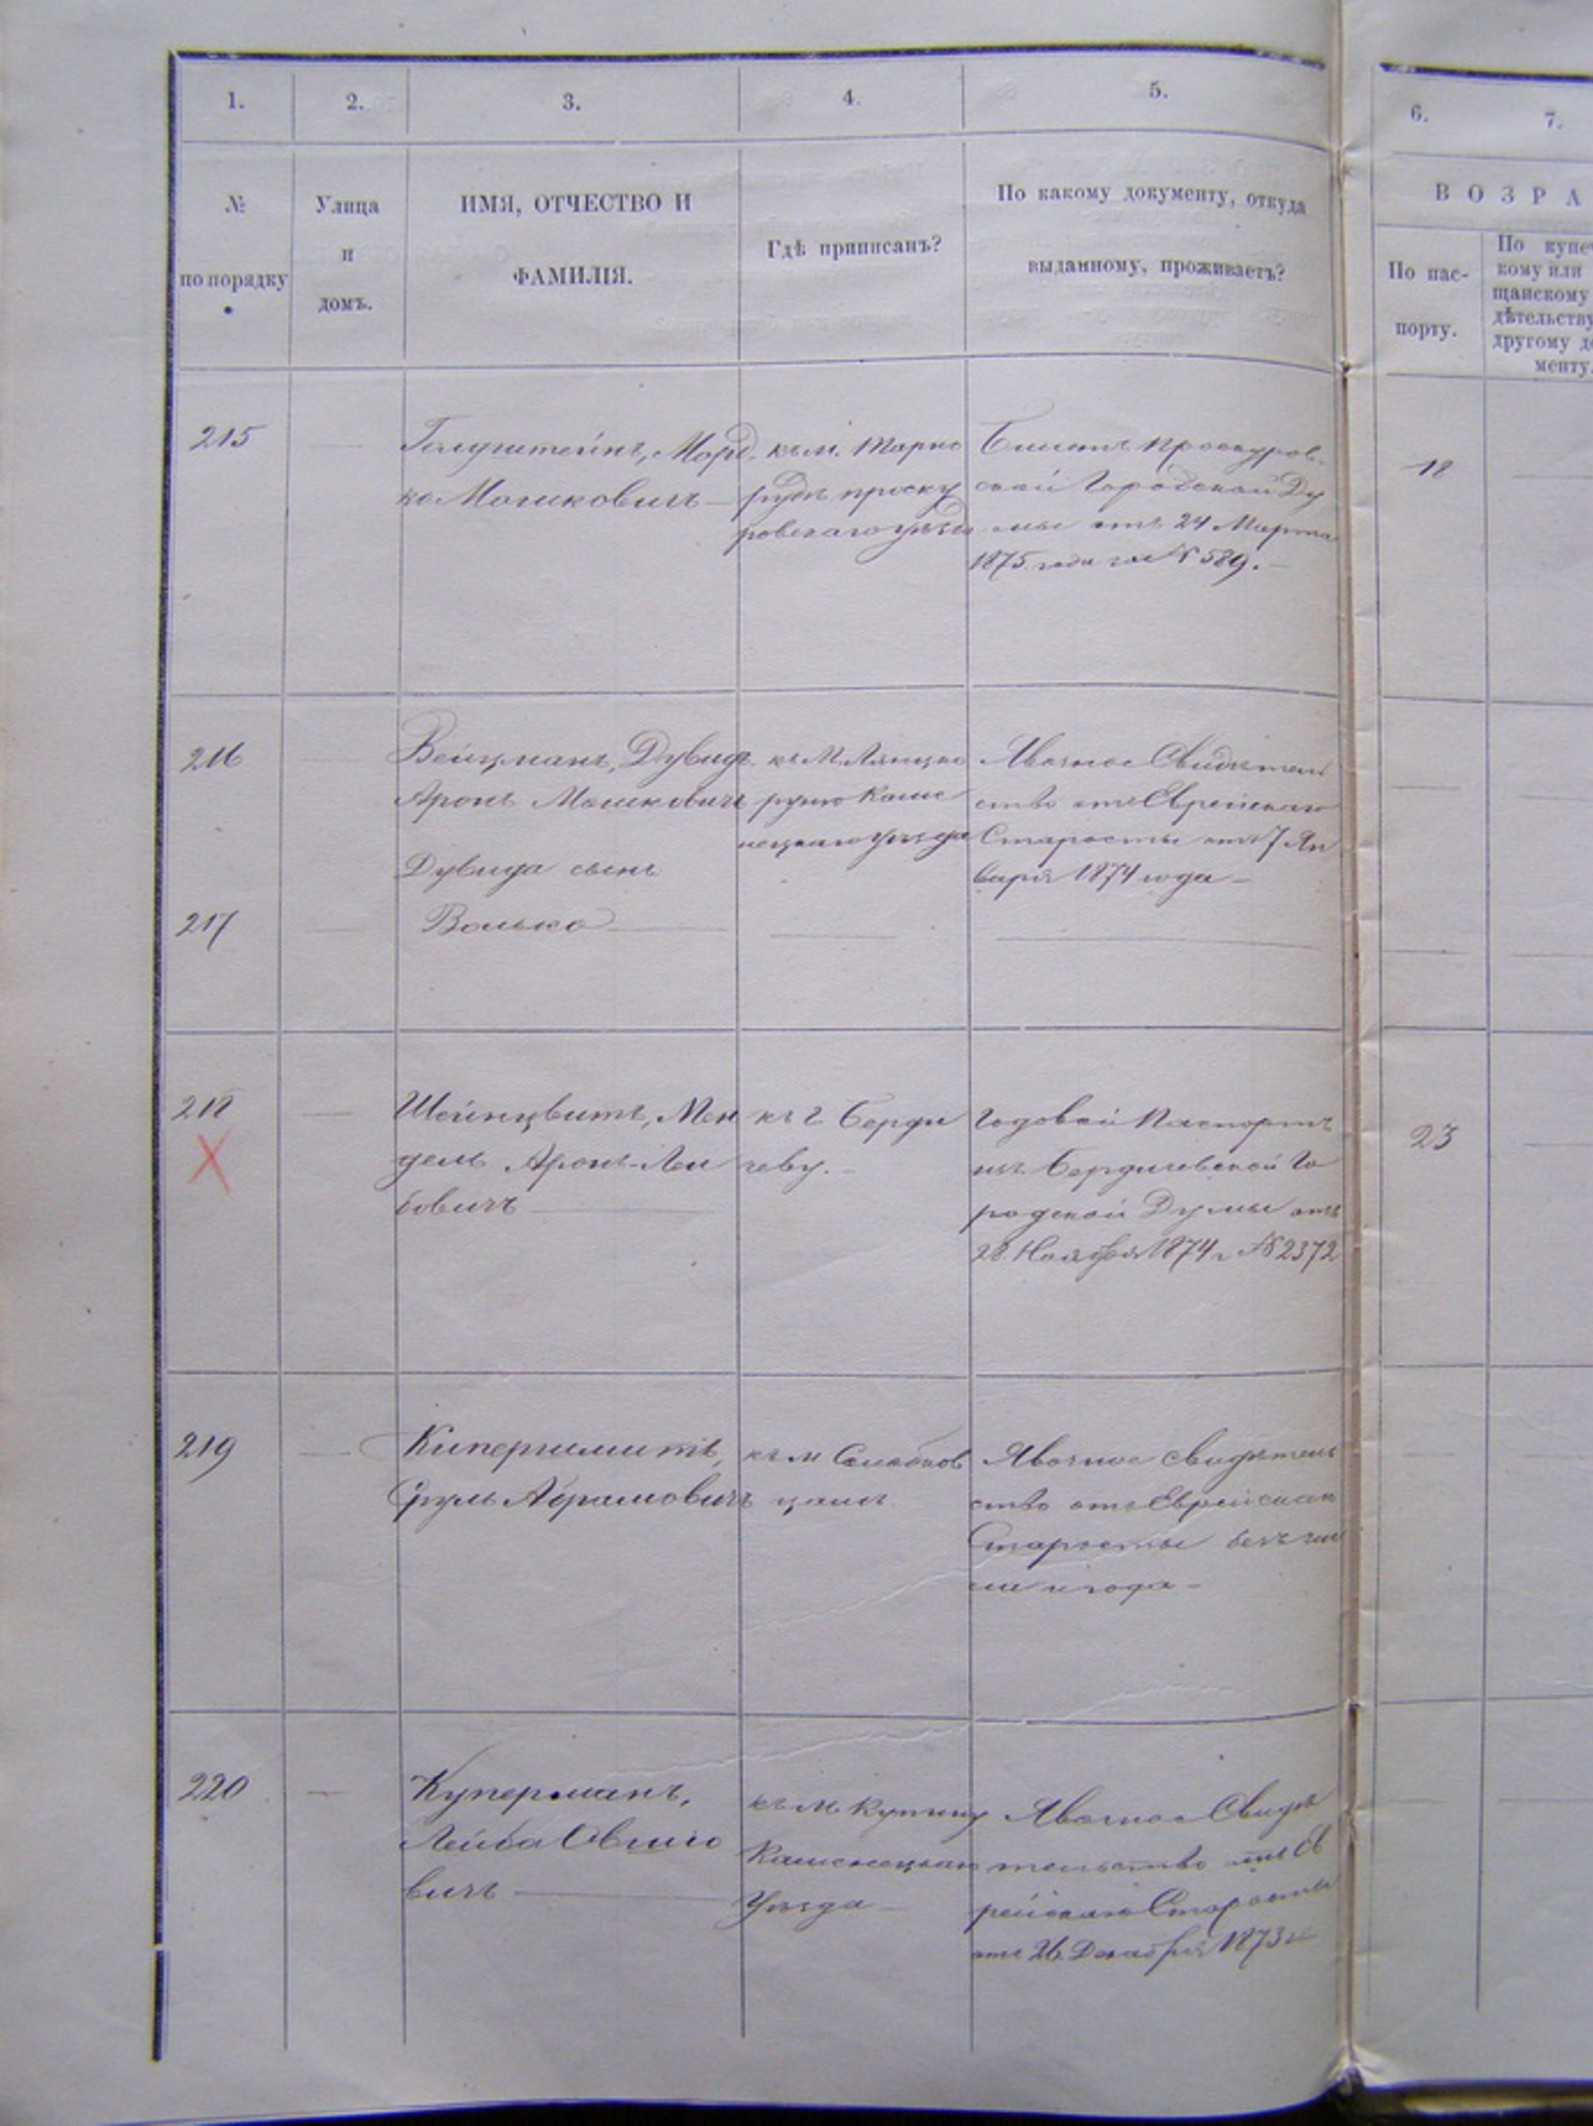 1. 2. 3. 4. 5. 6. 7.
№
по порядку
Улица
и
домъ.
ИМЯ, ОТЧЕСТВО И
ФАМИЛІЯ.
Гдѣ приписанъ?
По какому документу, откуда
выданному, проживаетъ?
ВОЗРА
По пас-
порту.
По купе
кому или
щанскому
дѣтельству
другому до
менту.
215
Морд
ко Мошковичъ
къ м. Тарно
рудѣ проску
ровскаго уѣзда
Билетъ Проскуров-
ской Городской Ду
мы отъ 24 Марта
1875 года за № 589.
18
216
Вейцманъ, Дувидъ
Аронъ Мошковичъ
къ м. Лянцко
руню Каме
нецкаго уѣзда
Явочное Свидѣтель
ство отъ Еврейскаго
Старосты отъ 7 Ян
варя 1874 года
Дувида сынъ
217
Волько
218
Х
Шейнцвитъ, Мен
дель Аронъ-Лей
бовичъ
къ г. Берди
чеву.
Годовой Паспортъ
изъ Бердичевской Го
родской Думы отъ
28. Ноября 1874 г. № 2372
23
219
Кипершмитъ,
Сруль Абрамовичъ
къ м Солобков
цамъ
Явочное свидѣтель
ство отъ Еврейскаго
Старосты безъ чи
сла и года
220
Куперманъ,
Лейба Овшіо
вичъ
къ м. Купину
Каменецкаго
Уѣзда
Явочное Свидѣ
тельство отъ Ев
рейскаго Старосты
отъ 26 Декабря 1873 г